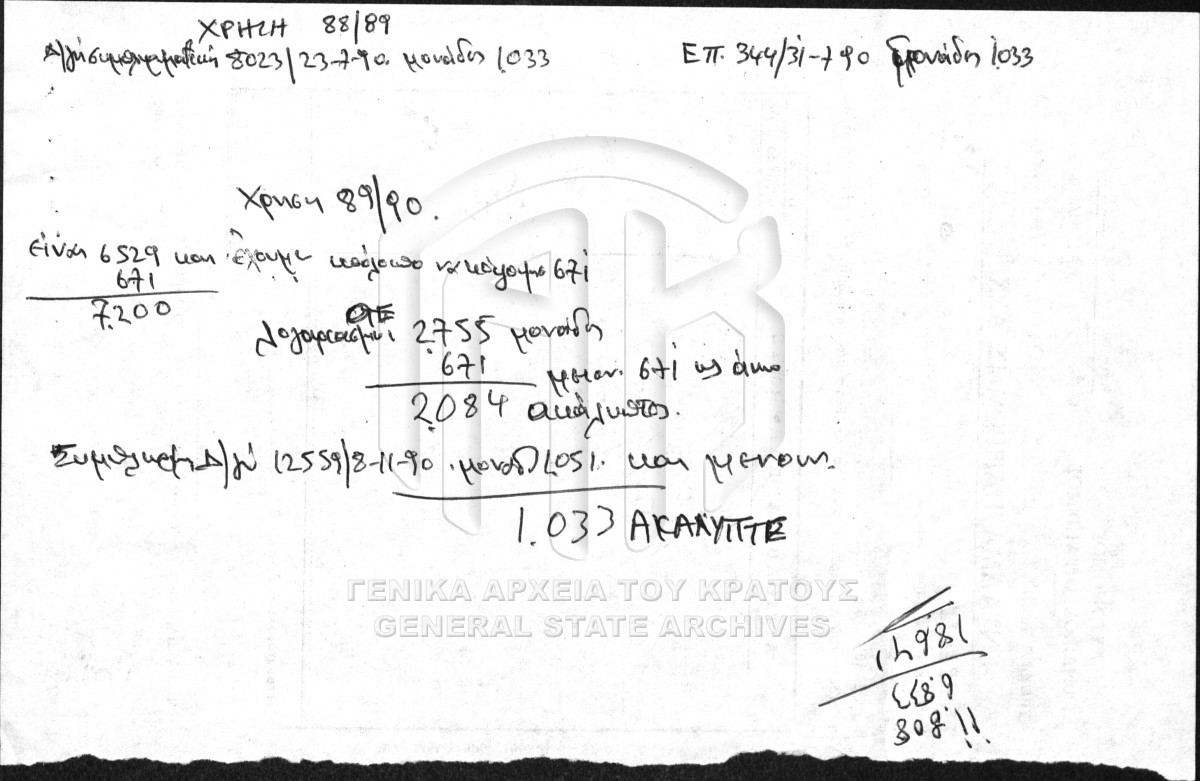 ΧΡΗΣΗ 88/89
Δ/γή συμπληρωματική 8023/23-7-90. μονάδες 1033
ΕΠ. 344/31-7-90 μονάδες 1033
Χρηση 89/90.
είναι 6529 και έχουμε 671
671
7.200
ΟΤΕ
λογαριασμοί 2.755 μονάδες
671 μειον. 671 ως άνω
2.084 ακάλυπτες.
Συμπληρ. Δ/γή 12559/8-11-90 μονάδ 1.051. και μενουν.
1.033 ΑΚΑΛΥΠΤΕ
ΓΕΝΙΚΑ ΑΡΧΕΙΑ ΤΟΥ ΚΡΑΤΟΥΣ
GENERAL STATE ARCHIVES
11.808
6.833
18641